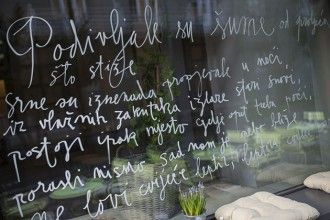 Podivljale su šume od proljeća
što stiže
Srne su iznenada propjevale u noći,
iz vlažnih zakutaka izlaze stari snovi,
postoji ipak mjesto gdje opet treba poći,
porasli nismo sad nam je
ne love cvijeće ljeti,